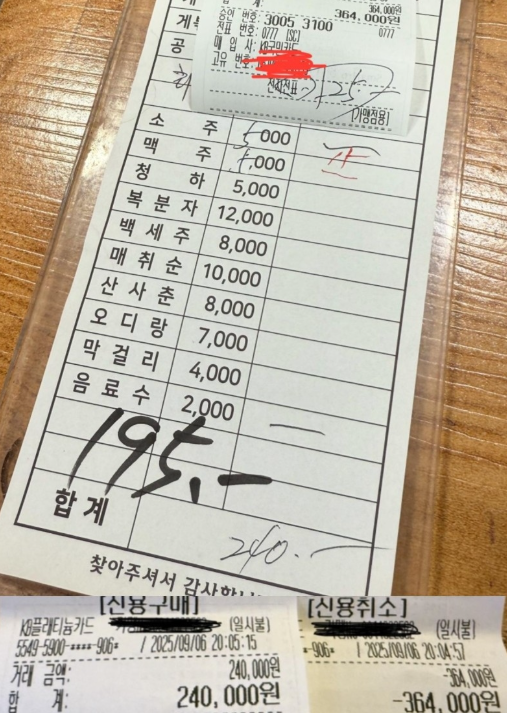 364,000원
364,000원
승인 번호: 3005 3100
전표 번호: 0777 [SC] 0777
매 입 사: KB국민카드
고유 번호:
[가맹점용]
소 주 5000
맥 주 5,000
청 하 5,000
복 분 자 12,000
백 세 주 8,000
매 취 순 10,000
산 사 춘 8,000
오 디 랑 7,000
막 걸 리 4,000
음 료 수 2,000 一
195.-
합 계
240.-
찾아주셔서 감사합니
[신용구매]
KB플래티늄카드 (일시불)
5549-5900-****-906* / 2025/09/06 20:05:15
거래 금액: 240,000원
합 계: 240,000원
[신용취소]
(일시불)
-906* / 2025/09/06 20:04:57
-364,000원
-364,000원